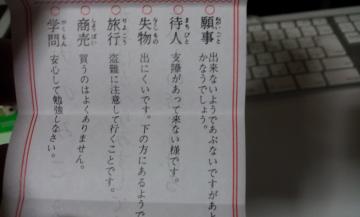 願事 出来ないようであぶないですがあと
かなうでしょう。
待人 支障があって来ない様です。
失物 出にくいです。下の方にあるようで
旅行 盗難に注意して行くことです。
商売 買うのはよくありません。
学問 安心して勉強しなさい。